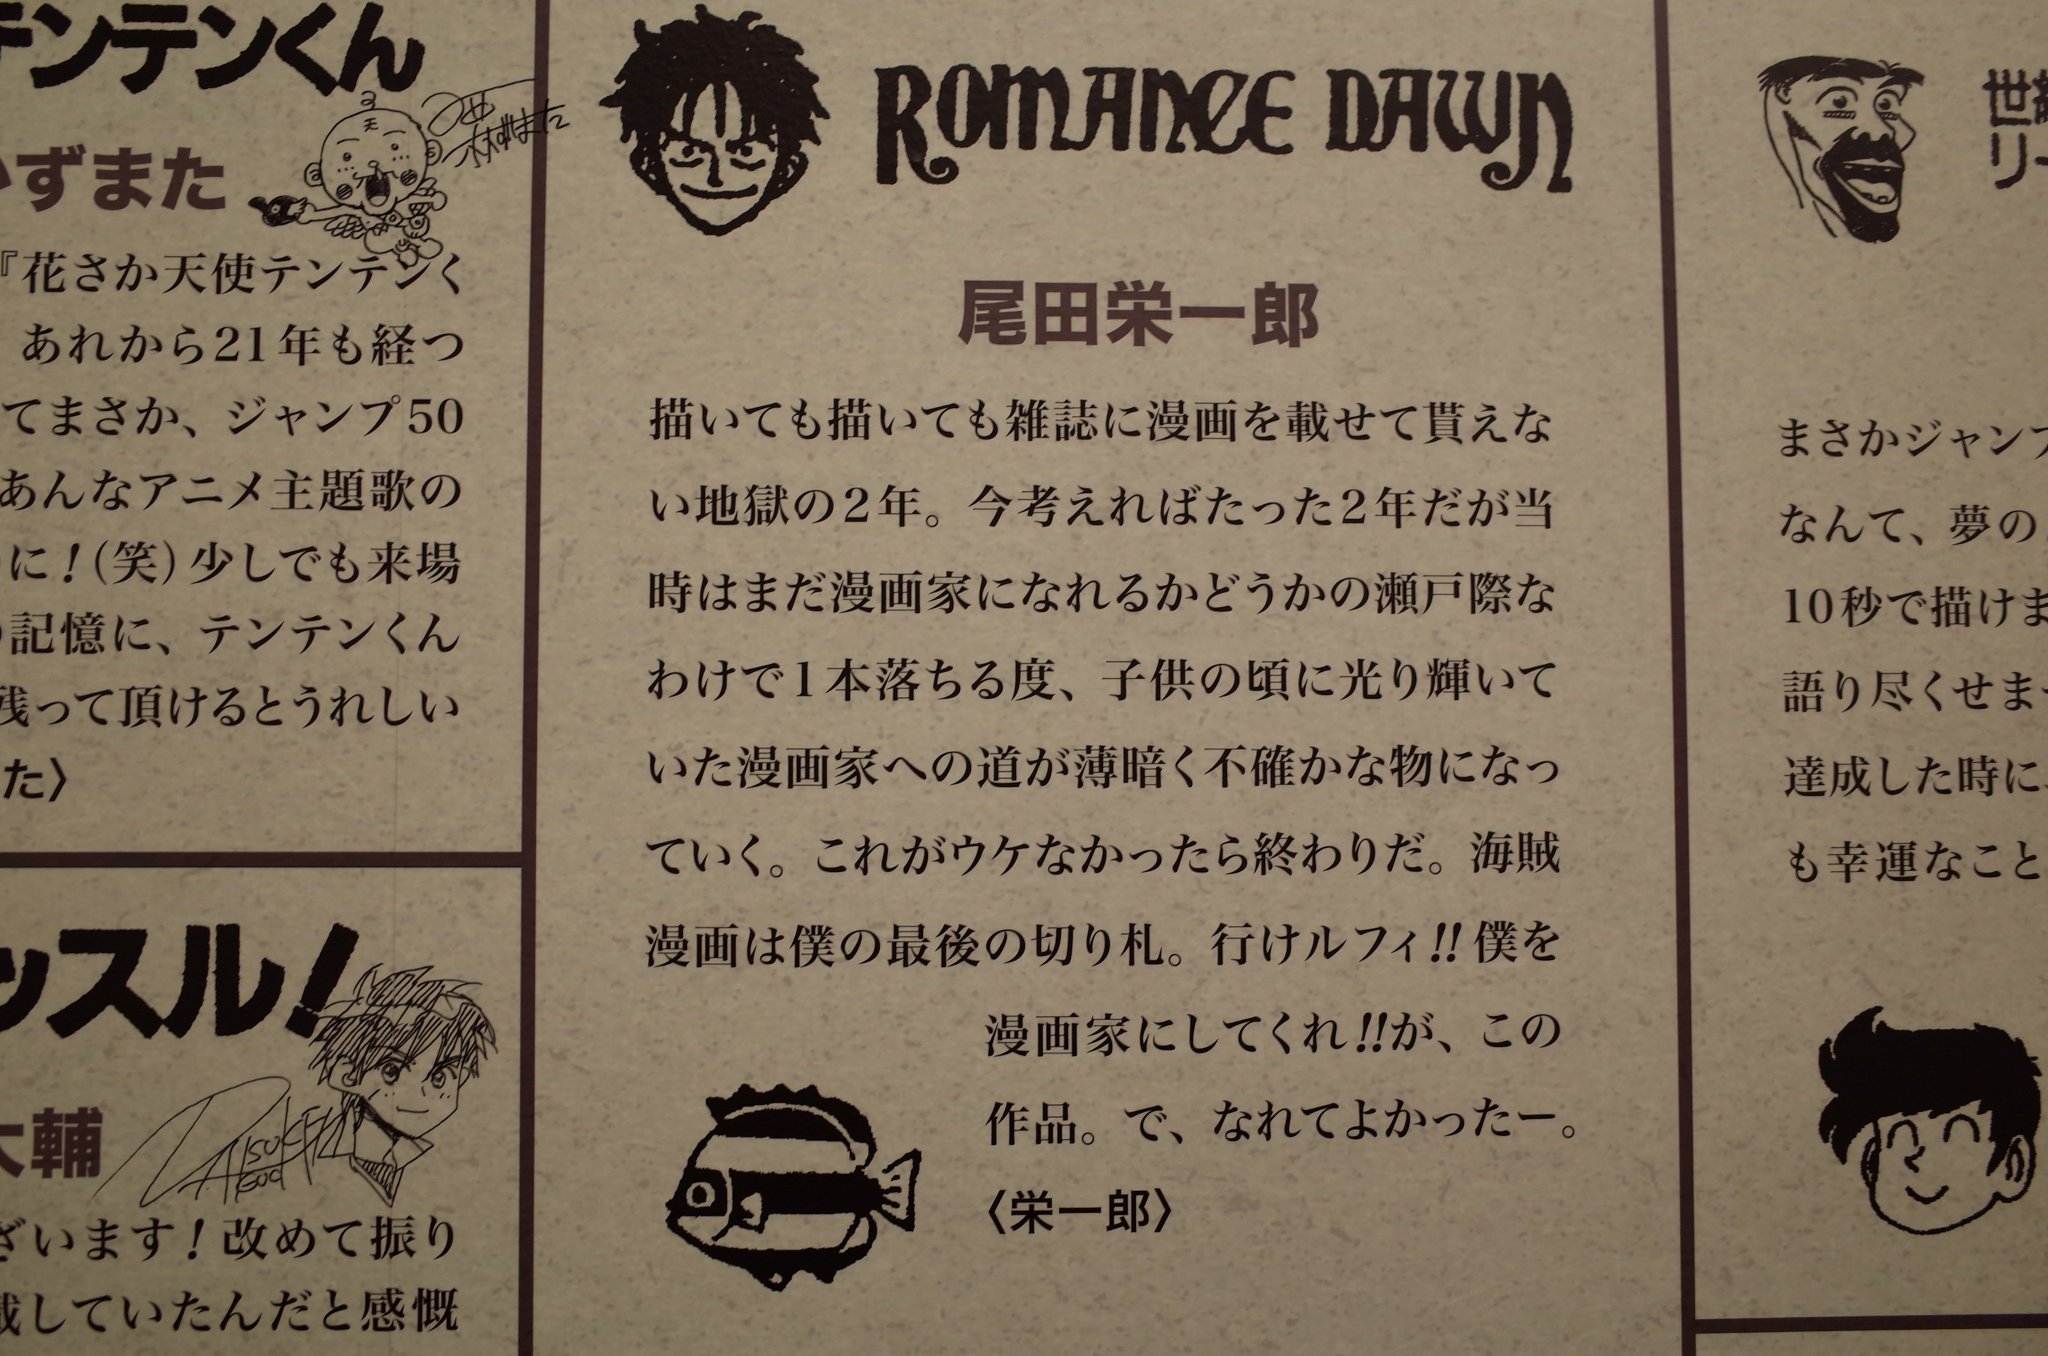 テンテンくん
かずまた
『花さか天使テンテンく
あれから21年も経つ
てまさか、ジャンプ50
あんなアニメ主題歌の
に!(笑)少しでも来場
記憶に、テンテンくん
残って頂けるとうれしい
た〉
ッスル!
大輔
ざいます!改めて振り
載していたんだと感慨
ROMANCE DAWN
尾田栄一郎
描いても描いても雑誌に漫画を載せて貰えな
い地獄の2年。今考えればたった2年だが当
時はまだ漫画家になれるかどうかの瀬戸際な
わけで1本落ちる度、子供の頃に光り輝いて
いた漫画家への道が薄暗く不確かな物になっ
ていく。これがウケなかったら終わりだ。海賊
漫画は僕の最後の切り札。行けルフィ!!僕を
漫画家にしてくれ!!が、この
作品。で、なれてよかったー。
〈栄一郎〉
世紀
リー
まさかジャンプ
なんて、夢の
10秒で描けま
語り尽くせませ
達成した時に
も幸運なこと